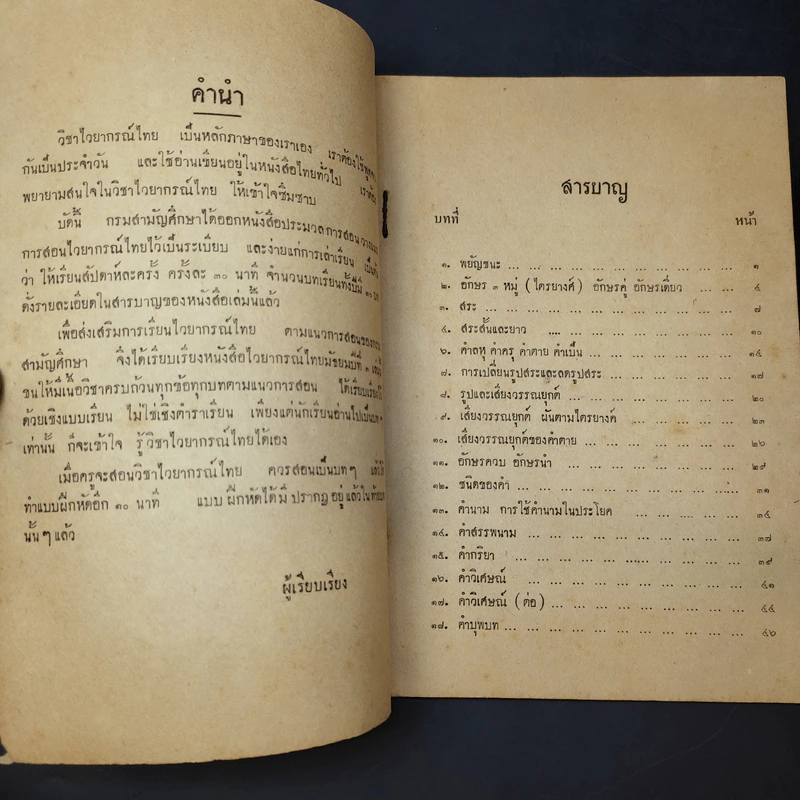 คำนำ
วิชาไวยากรณ์ไทย เป็นหลักภาษาของเราเอง เราต้องใช้พูด
กันเป็นประจำวัน และใช้อ่านเขียนอยู่ในหนังสือไทยทั่วไป เราต้อง
พยายามสนใจในวิชาไวยากรณ์ไทย ให้เข้าใจซึมซาบ
บัดนี้ กรมสามัญศึกษาได้ออกหนังสือประมวลการสอน
การสอนไวยากรณ์ไทยไว้เป็นระเบียบ และง่ายแก่การเล่าเรียน
ว่า ให้เรียนสัปดาห์ละครั้ง ครั้งละ ๓๐ นาที จำนวนบทเรียนทั้งปีมี
ดังรายละเอียดในสารบาญของหนังสือเล่มนี้แล้ว
เพื่อส่งเสริมการเรียนไวยากรณ์ไทย ตามแนวการสอนของ
สามัญศึกษา จึงได้เรียบเรียงหนังสือไวยากรณ์ไทยมัธยมปีที่
ขนให้มีเนื้อวิชาครบถ้วนทุกข้อทุกบทตามแนวการสอน ได้เรียบเรียง
ด้วยเชิงแบบเรียน ไม่ใช่เชิงตำราเรียน เพียงแต่นักเรียนอ่านไปเป็นบท ๆ
เท่านั้น ก็จะเข้าใจ รู้วิชาไวยากรณ์ไทยได้เอง
เมื่อครูจะสอนวิชาไวยากรณ์ไทย ควรสอนเป็นบทๆ แล้วให้
ทำแบบฝึกหัดอีก ๑๐ นาที แบบฝึกหัดได้มีปรากฏอยู่แล้วในท้าย
นั้นๆ แล้ว
ผู้เรียบเรียง
สารบาญ
บทที่ หน้า
๑. พยัญชนะ ... ๑
๒. อักษร ๓ หมู่ (ไตรยางศ์) อักษรคู่ อักษรเดี่ยว ... ๔
๓. สระ ... ๗
๔. สระสั้นและยาว ... ๑๐
๖. คำลหุ คำครุ คำตาย คำเป็น ... ๑๔
๗. การเปลี่ยนรูปสระและลดรูปสระ ... ๑๗
๘. รูปและเสียงวรรณยุกต์ ... ๒๐
๙. เสียงวรรณยุกต์ ผันตามไตรยางค์ ... ๒๓
๑๐. เสียงวรรณยุกต์ของคำตาย ... ๒๖
๑๑. อักษรควบ อักษรนำ ... ๒๙
๑๒. ชนิดของคำ ... ๓๑
๑๓. คำนาม การใช้คำนามในประโยค ... ๓๔
๑๔. คำสรรพนาม ... ๓๗
๑๕. คำกริยา ... ๓๙
๑๖. คำวิเศษณ์ ... ๔๑
๑๗. คำวิเศษณ์ (ต่อ) ... ๔๔
๑๘. คำบุพบท ... ๔๖